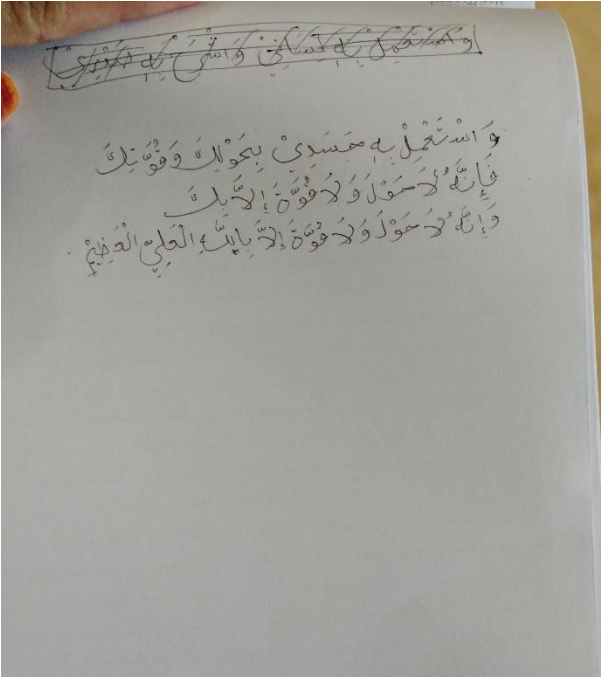 وَاسْتَعْمِلْ بِهِ جَسَدِيْ بِحَوْلِكَ وَقُوَّتِكَ
فَإِنَّهُ لاَحَوْلَ وَلاَ قُوَّةَ إِلاَّ بِكَ
وَإِنَّهُ لاَحَوْلَ وَلاَ قُوَّةَ إِلاَّ بِاللَّهِ الْعَلِيِّ الْعَظِيْمِ